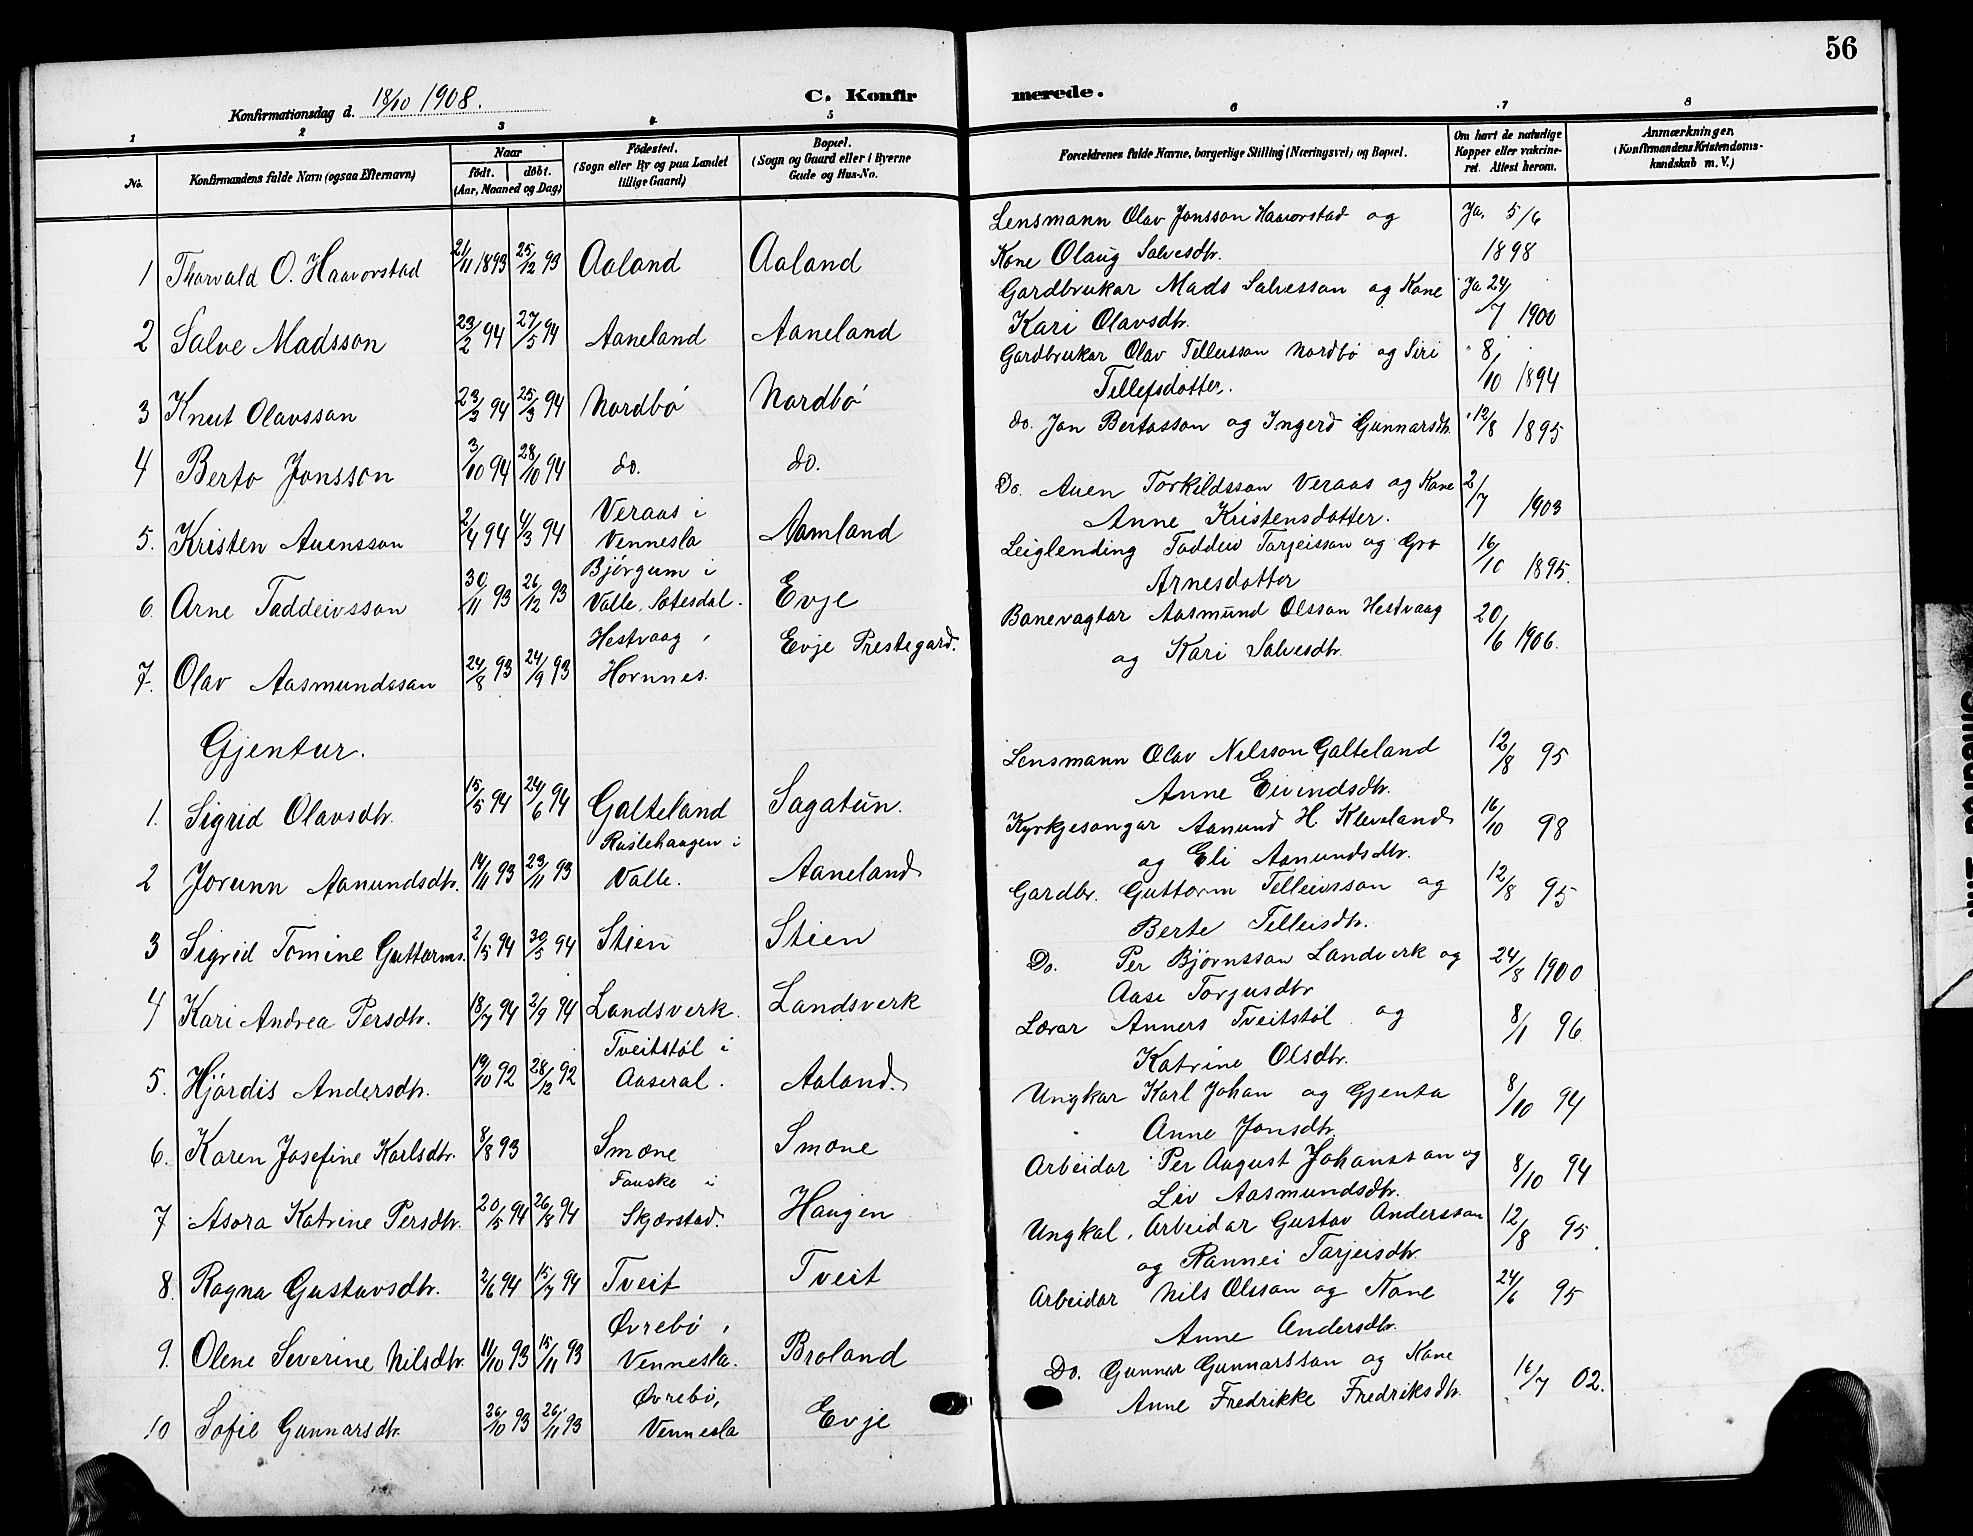 56
Konfirmationsdag d. 18/10 1908.
C. Konfirmerede.
1 2 3 4 5 6 7 8
No.
Konfirmandens fulde Navn (ogsaa Efternavn)
Naar
født. døbt.
(Aar, Maaned og Dag)
Fødested.
(Sogn eller By og paa Landet
tillige Gaard)
Bopæl.
(Sogn og Gaard eller i Byerne
Gade og Hus-No.
Forældrenes fulde Navne, borgerlige Stilling (Næringsvei) og Bopæl.
Om havt de naturlige
Kopper eller vaccineret. Attest herom.
Anmærkninger.
(Konfirmandens Kristendomskundskab m. V.)
1 Thorvald O. Haavorstad 21/11 1893 25/12 93 Aaland Aaland Lensmann Olav Jonsson Haavorstad og Ja. 5/6
Kone Olaug Salvesdtr. 1898
2 Salve Madsson 23/2 94 27/5 94 Aaneland Aaneland Gardbrukar Mads Salvesson og Kone Ja 24/7 1900
Kari Olavsdtr.
3 Knut Olavsson 23/3 94 25/3 94 Nordbø Nordbø Gardbrukar Olav Tellusson Nordbø og Siri " 8/10 1894
Tellefsdotter.
4 Berto Jonsson 3/10 94 28/10 94 do. do. do. Jon Bertosson og Ingerd Gunnarsdtr. " 12/8 1895
5. Kristen Auensson 2/4 94 4/3 94 Veraas i Vennesla Aamland Do. Auen Torkildsson Veraas og Kone 2/7 1903
Anne Kristensdotter.
6. Arne Taddeivsson 30/11 93 26/12 93 Bjørgum i Valle, Sætesdal. Evje Leiglending Taddeiv Tarjeisson og Gro 16/10 1895.
Arnesdotter
7. Olav Aasmundsson 24/8 93 24/9 93 Hestvaag, Hornnes. Evje Prestegard. Banevagtar Aasmund Olsson Hestvaag 20/6 1906.
og Kari Salvesdtr.
Gjentur.
1. Sigrid Olavsdtr. 15/5 94 24/6 94 Galteland Sagatun. Lensmann Olav Nilsson Galteland 12/8 95
Anne Eivindsdtr.
2 Jorunn Aanundsdtr. 14/11 93 23/11 93 Rustehaugen i Valle. Aaneland Kyrkjesongar Aanund H. Kleveland 16/10 98
og Eli Aanundsdtr.
3 Sigrid Tomine Guttorms. 2/5 94 30/5 94 Stien Stien Gardbr. Guttorm Telleivsson og 12/8 95
Berte Telleisdtr.
4 Kari Andrea Persdtr. 18/7 94 2/9 94 Landsverk. Landsverk Do. Per Bjørnsson Landverk og 24/8 1900
Aase Torjusdtr
5. Hjördis Andersdtr. 19/10 92 28/12 92 Tveitstøl i Aaseral. Aaland. Lærar Anners Tveitstøl og 8/1 96
Katrine Olsdtr.
6. Karen Josefine Karlsdtr. 8/8 93 Smæne Smæne Ungkar Karl Johan og Gjenta 8/10 94
Anne Jonsdtr
7 Asora Katrine Persdtr. 20/5 94 26/8 94 Fauske i Skjærstad. Haugen Arbeidar Per August Johansson og 8/10 94
Liv Aasmundsdtr.
8. Ragna Gustavsdtr. 2/6 94 15/7 94 Tveit Tveit Ungkal, Arbeidar Gustav Andersson 12/8 95.
og Rannei Tarjeisdtr.
9. Olene Severine Nilsdtr. 11/10 93 15/11 93 Øvrebø, Vennesla. Broland Arbeidar Nils Olsson og Kone 24/6 95
Anne Andersdtr.
10 Sofie Gunnarsdtr. 26/10 93 26/11 93 Øvrebø, Vennesla Evje Do. Gunnar Gunnarsson og Kone 16/7 02.
Anne Fredrikke Fredriksdtr.